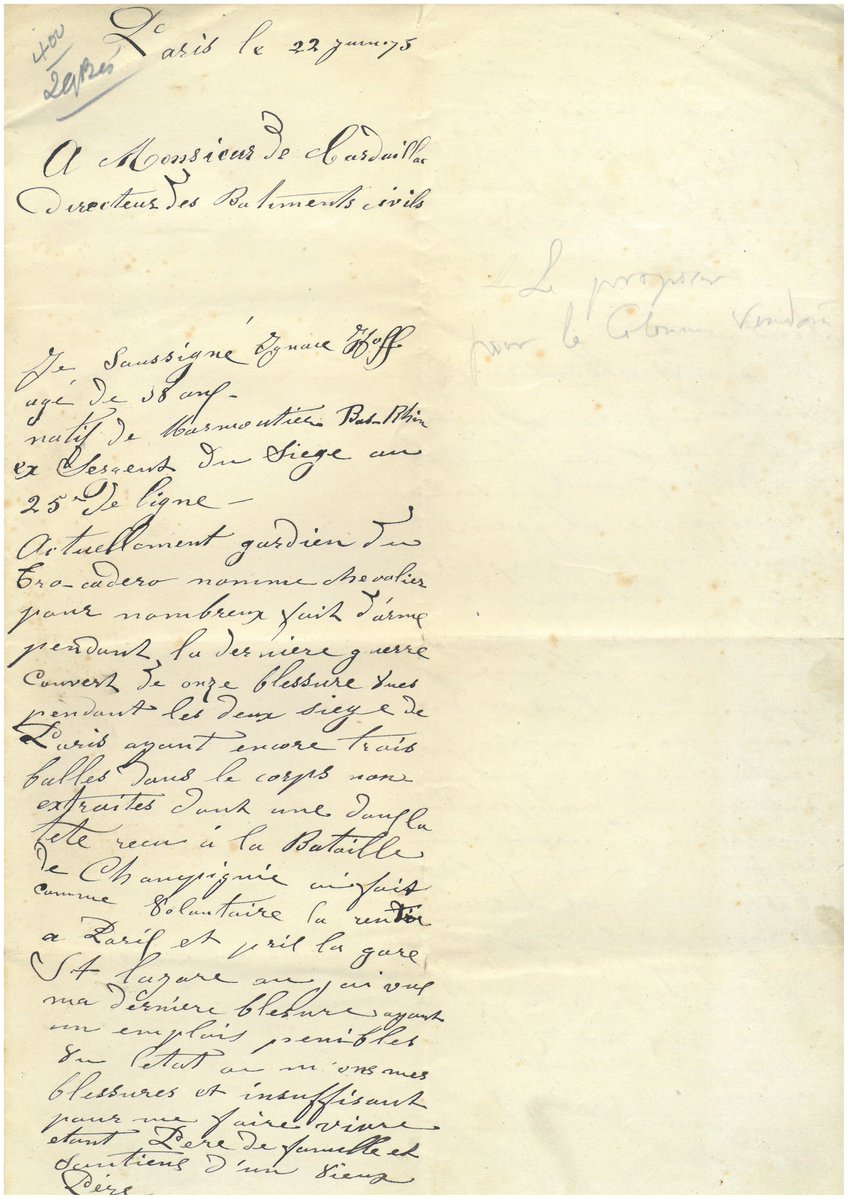 400
Paris le 22 juin 75
A Monsieur de Cardaillac
directeur des Batiments civils
Le proposer
pour la Colonne Vendôme
Je Soussigné Ignace Hoff
agé de 38 ans -
natif de Marmoutier Bas-Rhin
ex Sergent du Siege au
25e de ligne -
Actuellement gardien du
Trocadero nomme chevalier
pour nombreux fait d'arme
pendant la derniere guerre
couvert de onze blessure
pendant les deux siege de
Paris ayant encore trois
balles dans le corps non
extraites dont une dans la
tete recu à la Bataille
de Champignie ai fait
comme volontaire la rentre
a Paris et pris la gare
St lazare
ma derniere blesure ayant
un emplois penibles
vu l'etat
blessures et insuffisant
pour me faire vivre
etant Pere de famille et
soutiens d'un vieux
Père